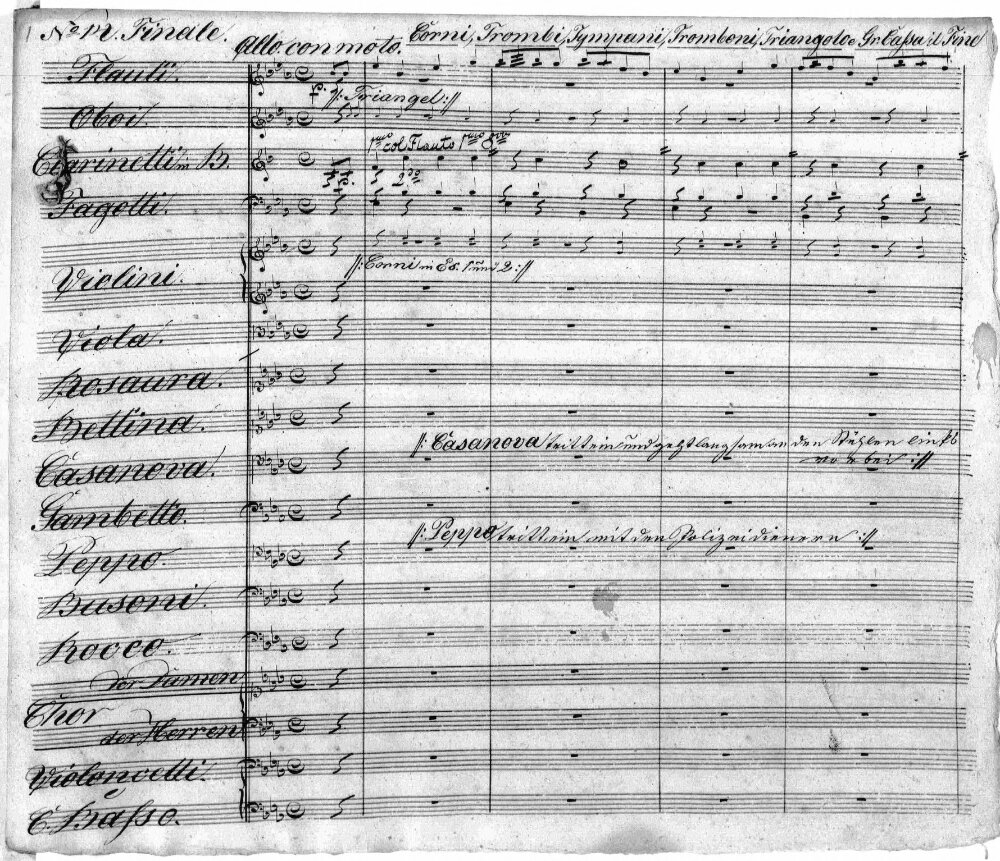 1 No 12. Finale.
Allo con moto.
Corni, Trombi, Tympani, Tromboni, Triangolo e Gr. Cassa il Fine
Flauti.
p. /: Triangel :/
Oboi.
1mo col Flauto 1mo 8va
Clarinetti in B.
2do
Fagotti.
/: Corni in Es. 1 und 2 :/
Violini.
Viola.
Rosaura.
Bettina.
/: Casanova tritt ein und geht langsam an den Stühlen links
vorbei :/
Casanova.
Gambetto.
/: Peppo tritt ein mit den Polizeidienern :/
Peppo.
Busoni.
Rocco.
der Damen
Chor
der Herren
Violoncelli.
C. Basso.